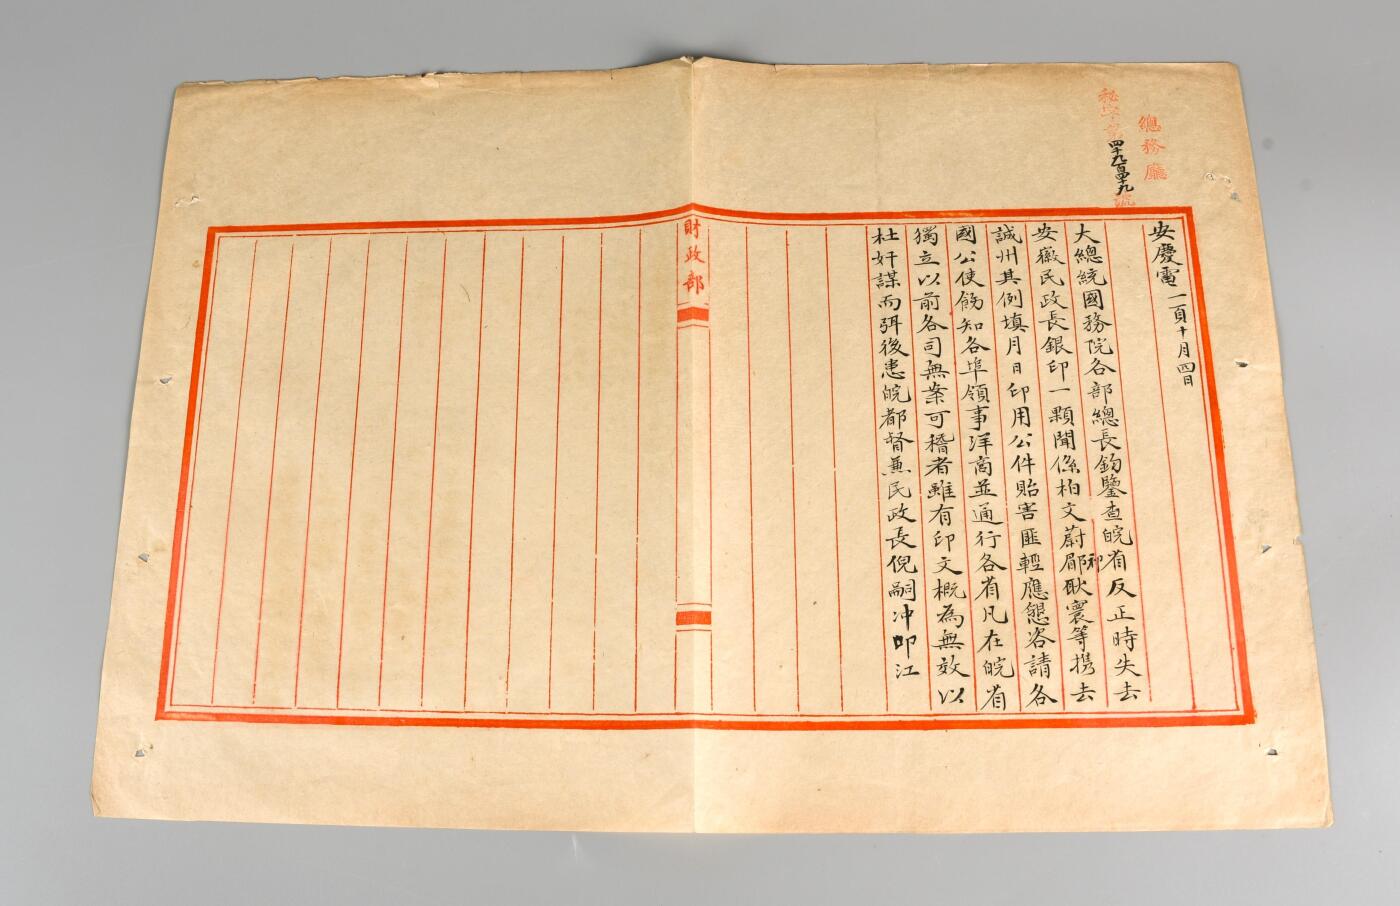 總務廳
秘字第四千九百四十九號
安慶電 一百十月四日
大總統國務院各部總長鈞鑒查皖省反正時失去
安徽民政長銀印一顆聞係柏文蔚祁耿寰等携去
誠州其例填月日印用公件貽害匪輕應懇咨請各
國公使飭知各埠領事洋商並通行各省凡在皖省
獨立以前各司無案可稽者雖有印文概為無效以
杜奸謀而弭後患皖都督兼民政長倪嗣冲叩江
財政部